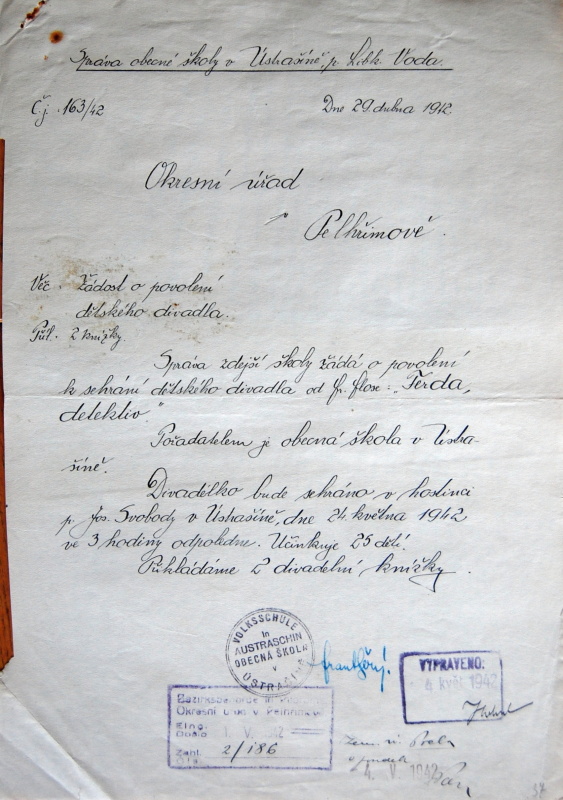 Správa obecné školy v Ústrašíně, p. Libk. Voda.
Č.j. 163/42
Dne 29. dubna 1942.
Okresní úřad
v
Pelhřimově.
Věc. Žádost o povolení
dětského divadla.
Příl. 2 knížky.
Správa zdejší školy žádá o povolení
k sehrání dětského divadla od Fr. Flose: „Ferda,
detektiv"
Pořadatelem je obecná škola v Ústra-
šíně.
Divadélko bude sehráno v hostinci
p. Jos. Svobody v Ústrašíně, dne 24. května 1942
ve 3 hodiny odpoledne. Účinkuje 25 dětí.
Přikládáme 2 divadelní knížky.
VOLKSSCHULE
in
AUSTRASCHIN
OBECNÁ ŠKOLA
v
ÚSTRAŠÍNĚ
VYPRAVENO:
4. květ. 1942
Bezirksbehörde in
Okresní úřad v Pelhřimově
Eing.
Došlo
1. V. 1942
Zahl
Čís.
2/186
4. V. 1942